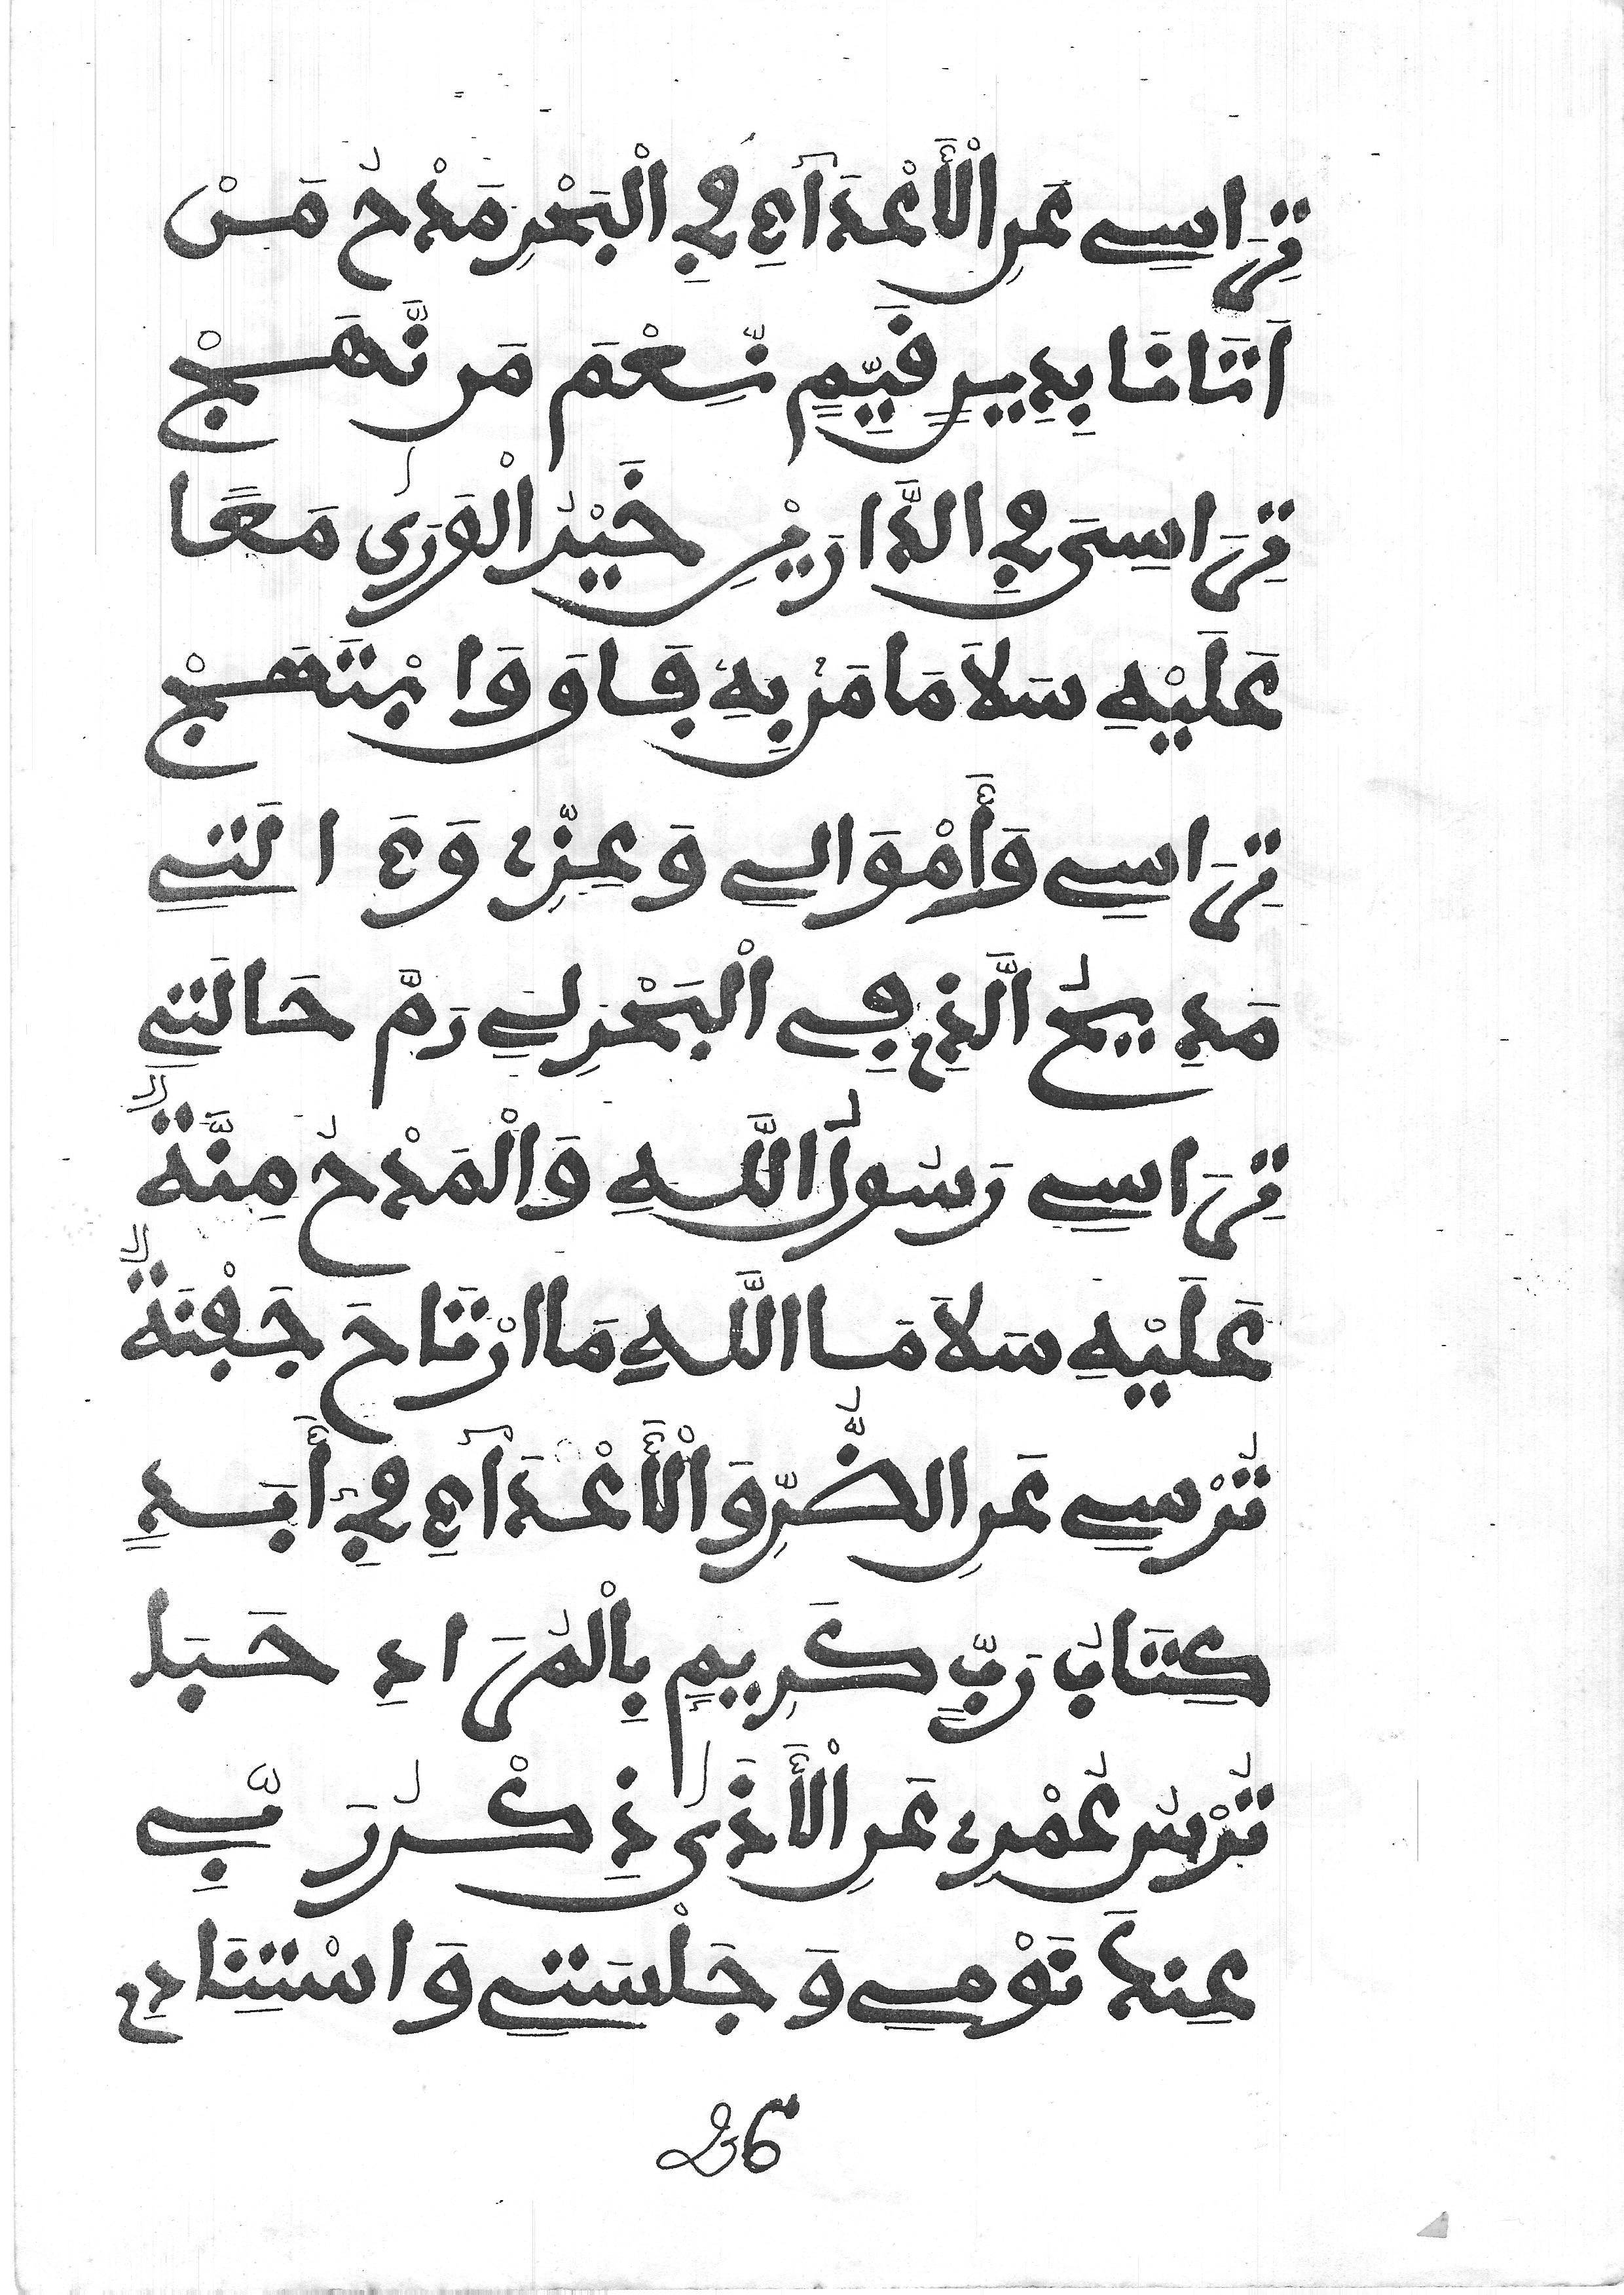 تِرَاسِي عَنِ الْأَعْدَآءِ فِي الْبَحْرِ مَدْحُ مَنْ
اَتَانَا بِدِينٍ قَيِّمٍ نِّعْمَ مَن نَّهَجْ
تِرَاسِىَ فِي الدَّارَيْنِ خَيْرُ الْوَرَىٰ مَعًا
عَلَيْهِ سَلَامَا مَنْ بِهِ فَاقَ وَابْتَهَجْ
تِرَاسِي وَأَمْوَالِي وَعِزِّي وَءَالَتِي
مَدِيحُ الَّذِي فِي الْبَحْرِ لِي رَمَّ حَالَتِي
تِرَاسِي رَسُولُ اللَّهِ وَالْمَدْحُ مِنَّةٌ
عَلَيْهِ سَلَامَا اللَّهِ مَا ارْتَاحَ جَفْنَةٌ
تُرْسِي عَنِ الضُّرِّ وَالْأَعْدَآءِ فِي أَبَدٍ
كِتَابُ رَبٍّ كَرِيمٍ بِالْمُرَادِ حَبَا
تُرْسُ عُمْرِي عَنِ الْأَذَىٰ ذِكْرُ رَبِّي
عِندَ نَوْمِي وَجَلْسَتِي وَاسْتِنَادِي
26